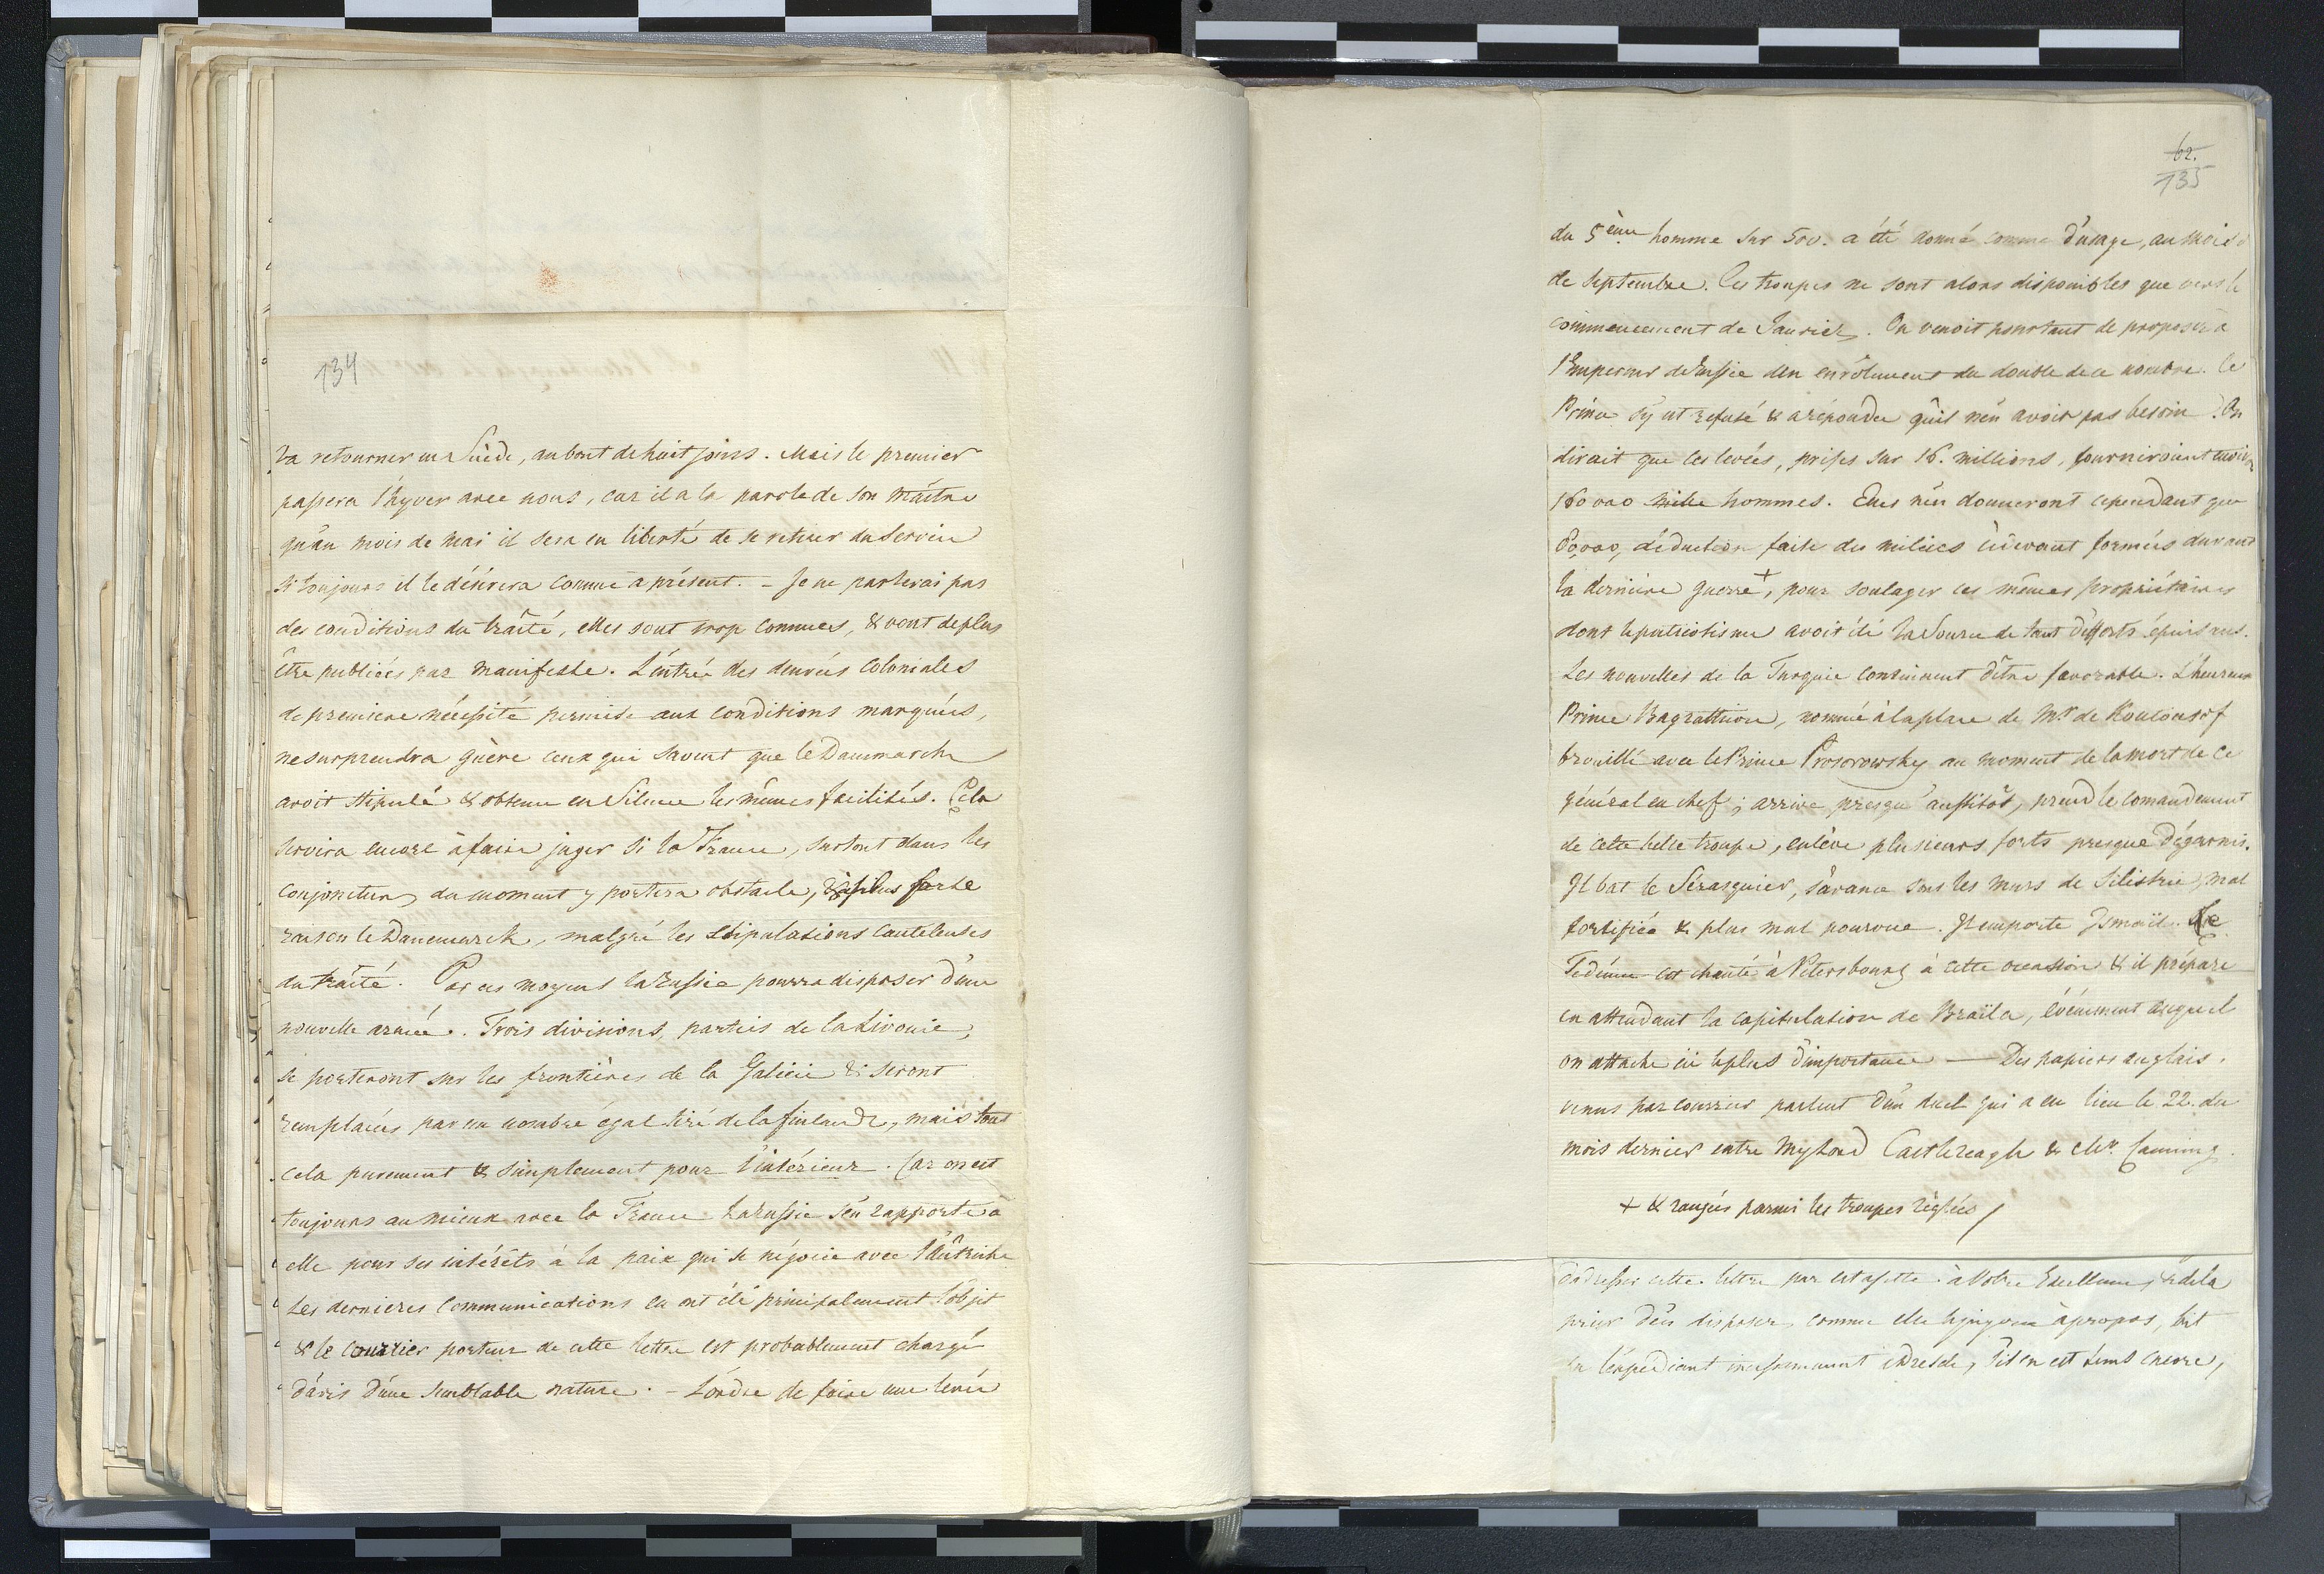 134
va retourner en Suède, au bout de huit jours. Mais le premier
passera l'hyver avec nous, car il a la parole de son Maitre
qu'au mois de Mai il sera en liberté de se retirer du Service
si toujours il le désirera comme à présent. - Je ne parlerai pas
des conditions du traité, elles sont trop connues, & vont de plus
être publiées par Manifeste. L'entrée des denrées Coloniales
de premiere nécessité permise aux conditions marquées,
ne surprendra guère ceux qui savent que le Dannemarck
avoit stipulé & obtenu en Silence les mêmes facilités. Cela
servira encore à faire juger si la France, surtout dans les
conjonctures du moment y portera obstacle, & à plus forte
raison le Danemarck, malgré les stipulations cauteleuses
du traité. Par ces moyens la Russie pourra disposer d'une
nouvelle armée. Trois divisions, parties de la Livonie,
se porteront sur les frontières de la Galicie & seront
remplacées par un nombre égal tiré de la finlande, mais tout
cela purement & simplement pour l'intérieur. Car on est
toujours au mieux avec la France. La Russie s'en rapporte à
elle pour ses intérêts à la paix qui se négocie avec l'Autriche
Les dernieres communications en ont été principalement l'objet
& le courrier porteur de cette lettre est probablement chargé
d'avis d'une semblable nature. - L'ordre de faire une levée
62.
135
du 5ème homme sur 500. a été donné comme d'usage, au mois
de Septembre. Ces troupes ne sont alors disponibles que vers le
commencement de Janvier. On venoit pourtant de proposer à
l'Empereur de Russie un enrôlement du double de ce nombre. Ce
Prince s'y est refusé & a répondu qu'il n'en avoit pas besoin. On
dirait que ces levées, prises sur 16. millions, fourniroient environ
160000 mille hommes. Elles n'en donneront cependant que
80,000, déduction faite des milices cidevant formées durant
la dernière guerre +, pour soulager ces mêmes propriétaires
dont le patriotisme avoit été la Source de tant d'efforts épuisans.
Les nouvelles de la Turquie continuent d'être favorable. L'heureux
Prince Bagrathion, nommé à la place de Mr de Koutousof
brouillé avec le Prince Prosorowsky au moment de la mort de ce
général en chef, arrive presqu'aussitôt, prend le comandement
de cette belle troupe, enlève plusieurs forts presque dégarnis.
Il bat le Sérasquier, s'avance sous les murs de Silistrie, mal
fortifiée & plus mal pourvue. Il emporte Ismaïl. Le
Tedéum est chanté à Petersbourg à cette occasion & il prépare
en attendant la capitulation de Braïla, événement auquel
on attache ici le plus d'importance — Des papiers anglais,
venus par courrier parlent d'un duel qui a eu lieu le 22. du
mois dernier entre Mylord Castlereagh & Mr. Canning.
+ & rangées parmi les troupes réglées /
d'adresser cette lettre par estafette à Votre Excellence, & de la
prier d'en disposer, comme elle le jugera àpropos, soit
en l'expédiant incessamment à Dresde, s'il en est tems encore,